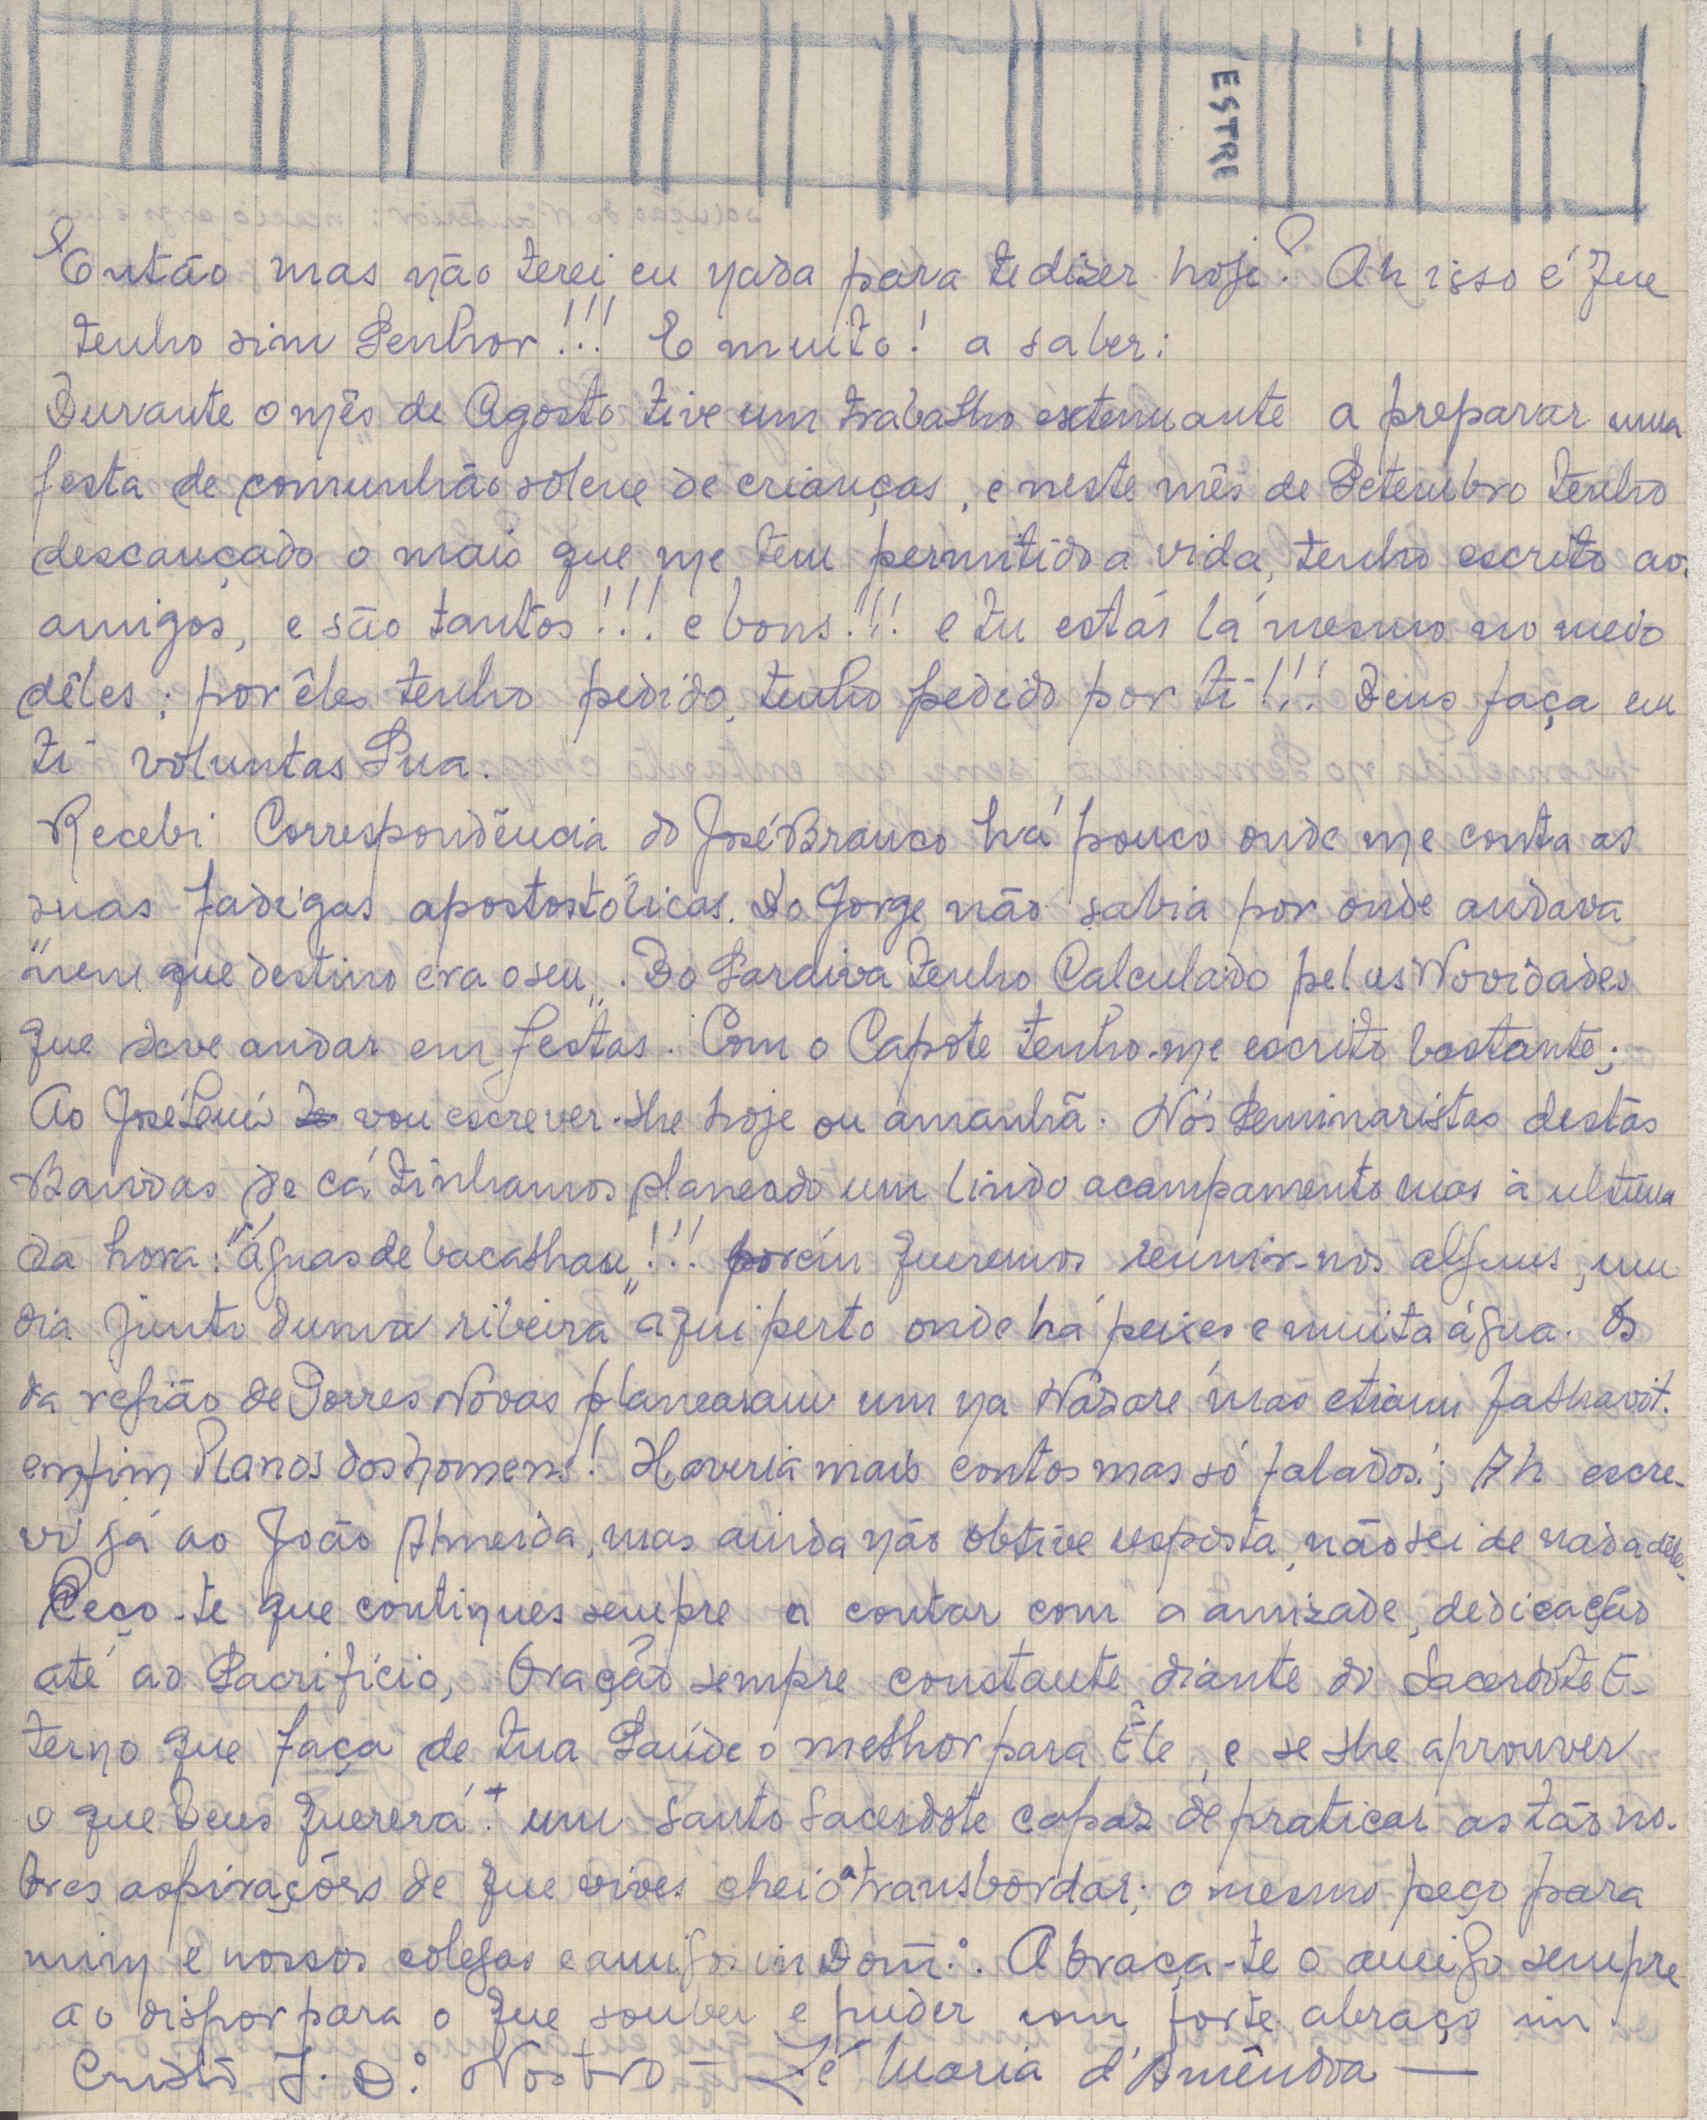 ESTRE
Então mas não terei eu nada para te dizer hoje? Ah isso é que
tenho sim Senhor!!! E muito! a saber:
Durante o mês de Agosto tive um trabalho extenuante a preparar uma
festa de comunhão solene de crianças, e neste mês de Setembro tenho
descançado o mais que me tem permitido a vida, tenho escrito aos
amigos, e são tantos!!! e bons!!! e tu estás lá mesmo no meio
dêles; por êles tenho pedido, tenho pedido por ti!!! Deus faça em
ti voluntas Sua.
Recebi Correspondência do José Branco há pouco onde me conta as
suas fadigas apostostólicas. Do Jorge não sabia por onde andava
"nem que destino era o seu". Do Saraiva tenho Calculado pelas Novidades
que deve andar em festas. Com o Capote tenho-me escrito bastante;
Ao José Luís vou escrever-lhe hoje ou amanhã. Nós Seminaristas destas
Bandas de cá tinhamos planeado um lindo acampamento mas à ultima
da hora: "águas de bacalhau"!!! porém queremos reunir-nos alguns, um
dia junto duma ribeira aqui perto onde há peixes e muita água. Os
da região de Torres Novas planearam um na Nazaré mas etiam falhavit.
enfim Planos dos homens! Haveria mais contos mas só falados!; Ah escre-
vi já ao João Almeida, mas ainda não obtive resposta, não sei de nada dêle.
Peço-te que contiques sempre a contar com a amizade, dedicação
até ao Sacrifício, Oração sempre constante diante do Sacerdote E-
terno que faça de tua Saúde o melhor para Êle, e se lhe aprouver
o que Deus quererá! + um santo sacerdote capaz de praticar as tão no-
bres aspirações de que vives cheio a transbordar; o mesmo peço para
mim e nossos colegas e amigos in Dom.º. Abraça-te o amigo sempre
ao dispor para o que souber e puder com forte abraço in
Cristo J. D.º Nostro — Zé Maria d'Amêndoa —